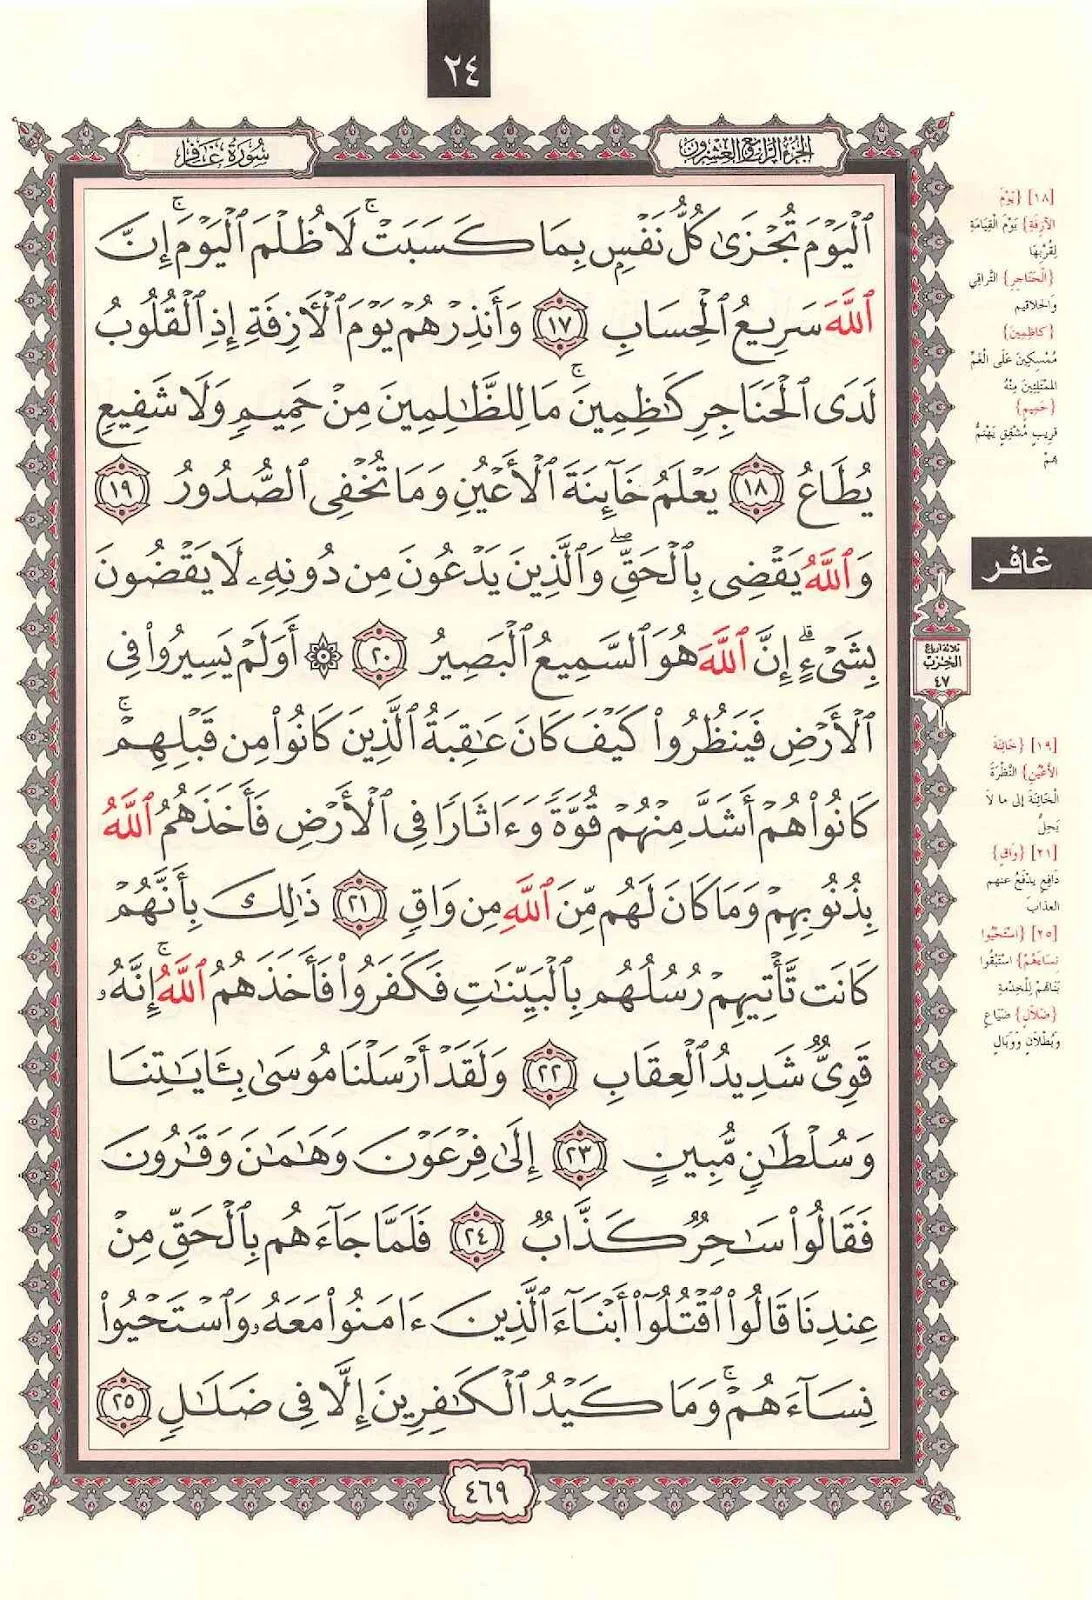 ٢٤
الجزء الرابع والعشرون
سورة غافر
ٱلْيَوْمَ تُجْزَىٰ كُلُّ نَفْسٍۭ بِمَا كَسَبَتْ ۚ لَا ظُلْمَ ٱلْيَوْمَ ۚ إِنَّ
ٱللَّهَ سَرِيعُ ٱلْحِسَابِ ١٧ وَأَنذِرْهُمْ يَوْمَ ٱلْأَزِفَةِ إِذِ ٱلْقُلُوبُ
لَدَى ٱلْحَنَاجِرِ كَٰظِمِينَ ۚ مَا لِلظَّٰلِمِينَ مِنْ حَمِيمٍ وَلَا شَفِيعٍ
يُطَاعُ ١٨ يَعْلَمُ خَآئِنَةَ ٱلْأَعْيُنِ وَمَا تُخْفِى ٱلصُّدُورُ ١٩
وَٱللَّهُ يَقْضِى بِٱلْحَقِّ ۖ وَٱلَّذِينَ يَدْعُونَ مِن دُونِهِۦ لَا يَقْضُونَ
بِشَىْءٍ ۗ إِنَّ ٱللَّهَ هُوَ ٱلسَّمِيعُ ٱلْبَصِيرُ ٢٠ ۞ أَوَلَمْ يَسِيرُوا۟ فِى
ٱلْأَرْضِ فَيَنظُرُوا۟ كَيْفَ كَانَ عَٰقِبَةُ ٱلَّذِينَ كَانُوا۟ مِن قَبْلِهِمْ ۚ
كَانُوا۟ هُمْ أَشَدَّ مِنْهُمْ قُوَّةً وَءَاثَارًا فِى ٱلْأَرْضِ فَأَخَذَهُمُ ٱللَّهُ
بِذُنُوبِهِمْ وَمَا كَانَ لَهُم مِّنَ ٱللَّهِ مِن وَاقٍ ٢١ ذَٰلِكَ بِأَنَّهُمْ
كَانَت تَّأْتِيهِمْ رُسُلُهُم بِٱلْبَيِّنَٰتِ فَكَفَرُوا۟ فَأَخَذَهُمُ ٱللَّهُ ۚ إِنَّهُۥ
قَوِىٌّ شَدِيدُ ٱلْعِقَابِ ٢٢ وَلَقَدْ أَرْسَلْنَا مُوسَىٰ بِـَٔايَٰتِنَا
وَسُلْطَٰنٍ مُّبِينٍ ٢٣ إِلَىٰ فِرْعَوْنَ وَهَٰمَٰنَ وَقَٰرُونَ
فَقَالُوا۟ سَٰحِرٌ كَذَّابٌ ٢٤ فَلَمَّا جَآءَهُم بِٱلْحَقِّ مِنْ
عِندِنَا قَالُوا۟ ٱقْتُلُوٓا۟ أَبْنَآءَ ٱلَّذِينَ ءَامَنُوا۟ مَعَهُۥ وَٱسْتَحْيُوا۟
نِسَآءَهُمْ ۚ وَمَا كَيْدُ ٱلْكَٰفِرِينَ إِلَّا فِى ضَلَٰلٍ ٢٥
٤٦٩
[١٨] {يَوْمَ
الآزِفَةِ} يَوْمَ الْقِيَامَةِ
لِقُرْبِهَا
{الْحَنَاجِرِ} التَّرَاقِي
وَالحَلاقِيمِ
{كَاظِمِينَ}
مُمْسِكِينَ عَلَى الْغَمِّ
المُمْتَلِئِينَ مِنْهُ
{حَمِيمٍ}
قَرِيبٍ مُشْفِقٍ يَهْتَمُّ
هِمْ
غافر
ثلاثة أرباع
الحزب
٤٧
[١٩] {خَائِنَةَ
الأَعْيُنِ} النَّظْرَةَ
الْخَائِنَةَ إِلَى مَا لَا
يَحِلُّ
[٢١] {وَاقٍ}
دَافِعٍ يَدْفَعُ عنهم
العذابَ
[٢٥] {اسْتَحْيُوا
نِسَاءَهُمْ} اسْتَبْقُوا
بَنَاتِهُمْ لِلْخِدْمَةِ
{ضَلَالٍ} ضَيَاعٍ
وَبُطْلَانٍ وَوَبَالٍ